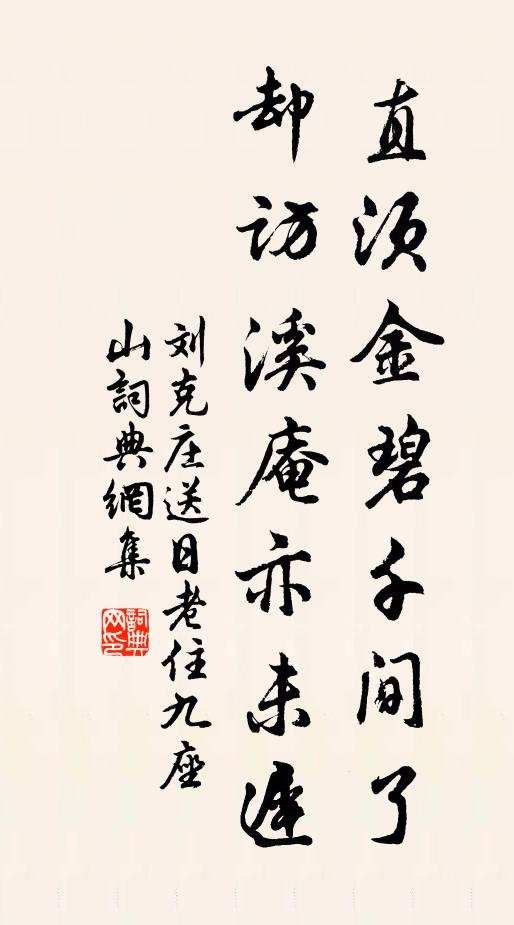 直须金碧千间了
却访溪庵亦未遲
刘克庄送日老住九座
山詞典網集
詞典网印